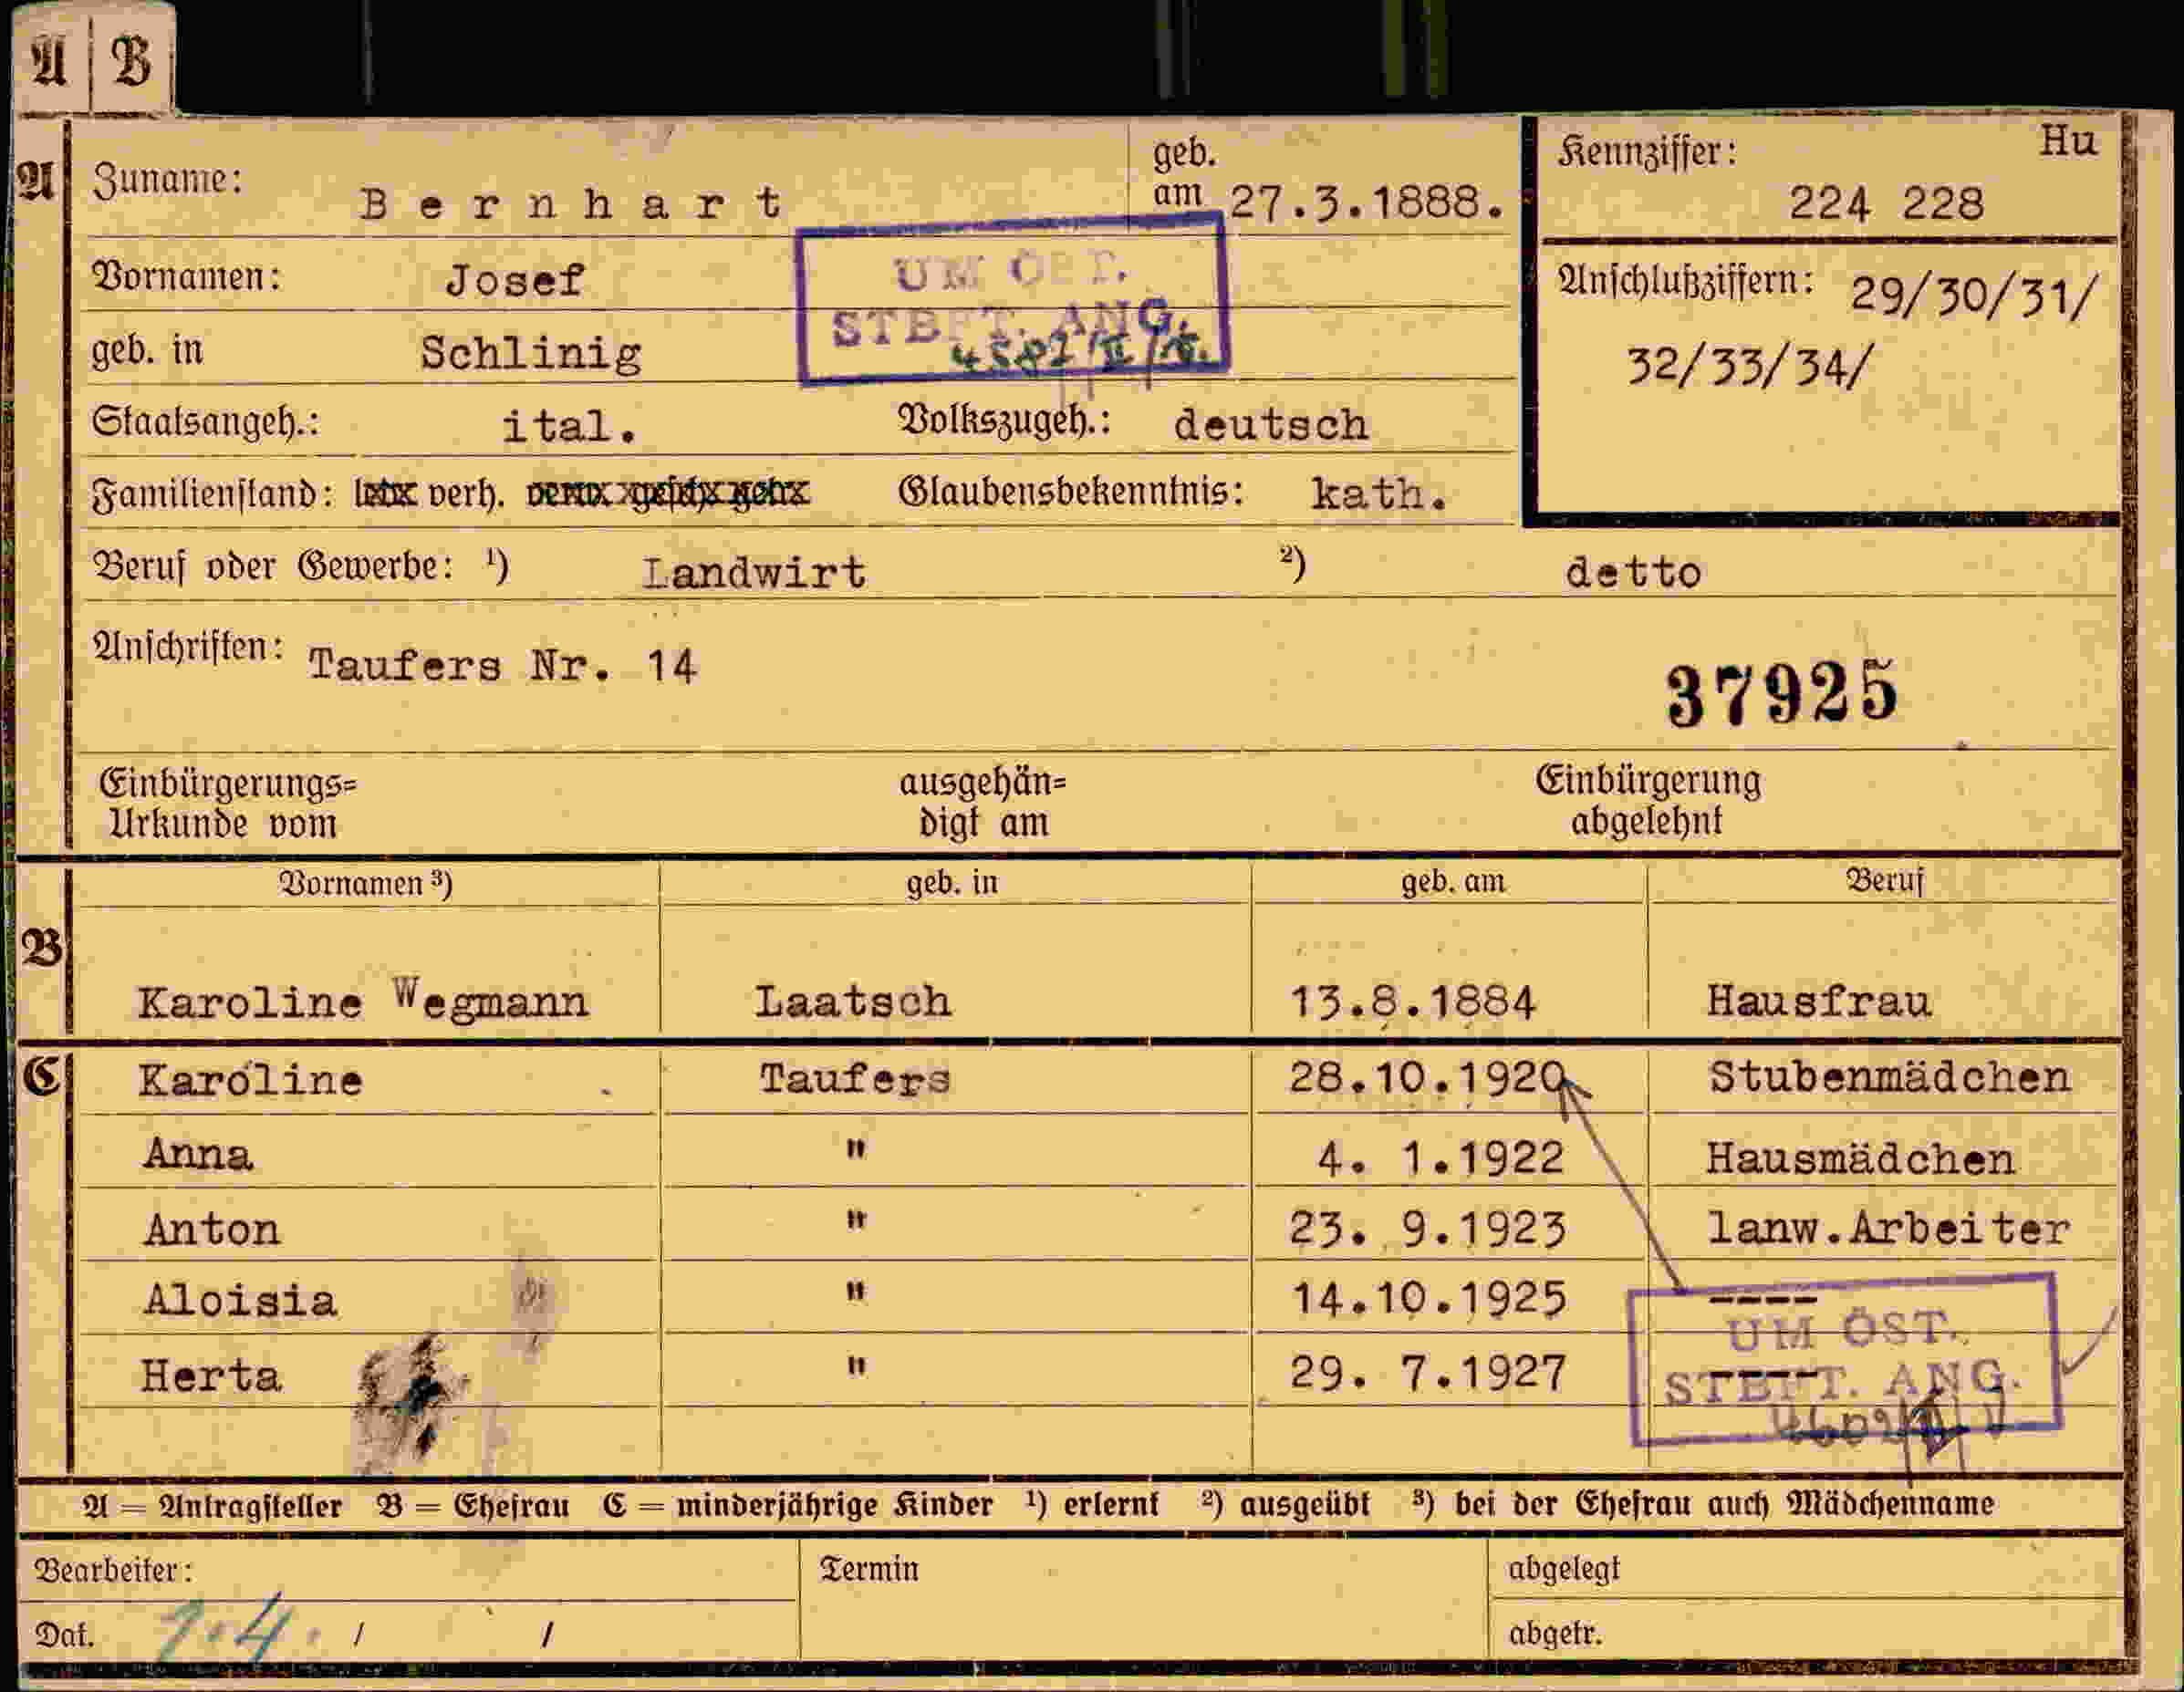 A B
A Zuname: Bernhart geb. am 27.3.1888.
Kennziffer: Hu
224 228
Vornamen: Josef
UM ÖST.
STBFT. ANG.
Anschlußziffern: 29/30/31/
32/33/34/
geb. in Schlinig
Staatsangeh.: ital. Volkszugeh.: deutsch
Familienstand: verh. Glaubensbekenntnis: kath.
Beruf oder Gewerbe: 1) Landwirt 2) detto
Anschriften: Taufers Nr. 14
37925
Einbürgerungs= ausgehän= Einbürgerung
Urkunde vom digt am abgelehnt
Vornamen 3) geb. in geb. am Beruf
B Karoline Wegmann Laatsch 13.8.1884 Hausfrau
C Karoline Taufers 28.10.1920 Stubenmädchen
Anna " 4. 1.1922 Hausmädchen
Anton " 23. 9.1923 lanw.Arbeiter
Aloisia " 14.10.1925 ----
Herta " 29. 7.1927 ----
UM ÖST.
STBFT. ANG.
A = Antragsteller B = Ehefrau C = minderjährige Kinder 1) erlernt 2) ausgeübt 3) bei der Ehefrau auch Mädchenname
Bearbeiter: Termin abgelegt
Dat. / / abgetr.